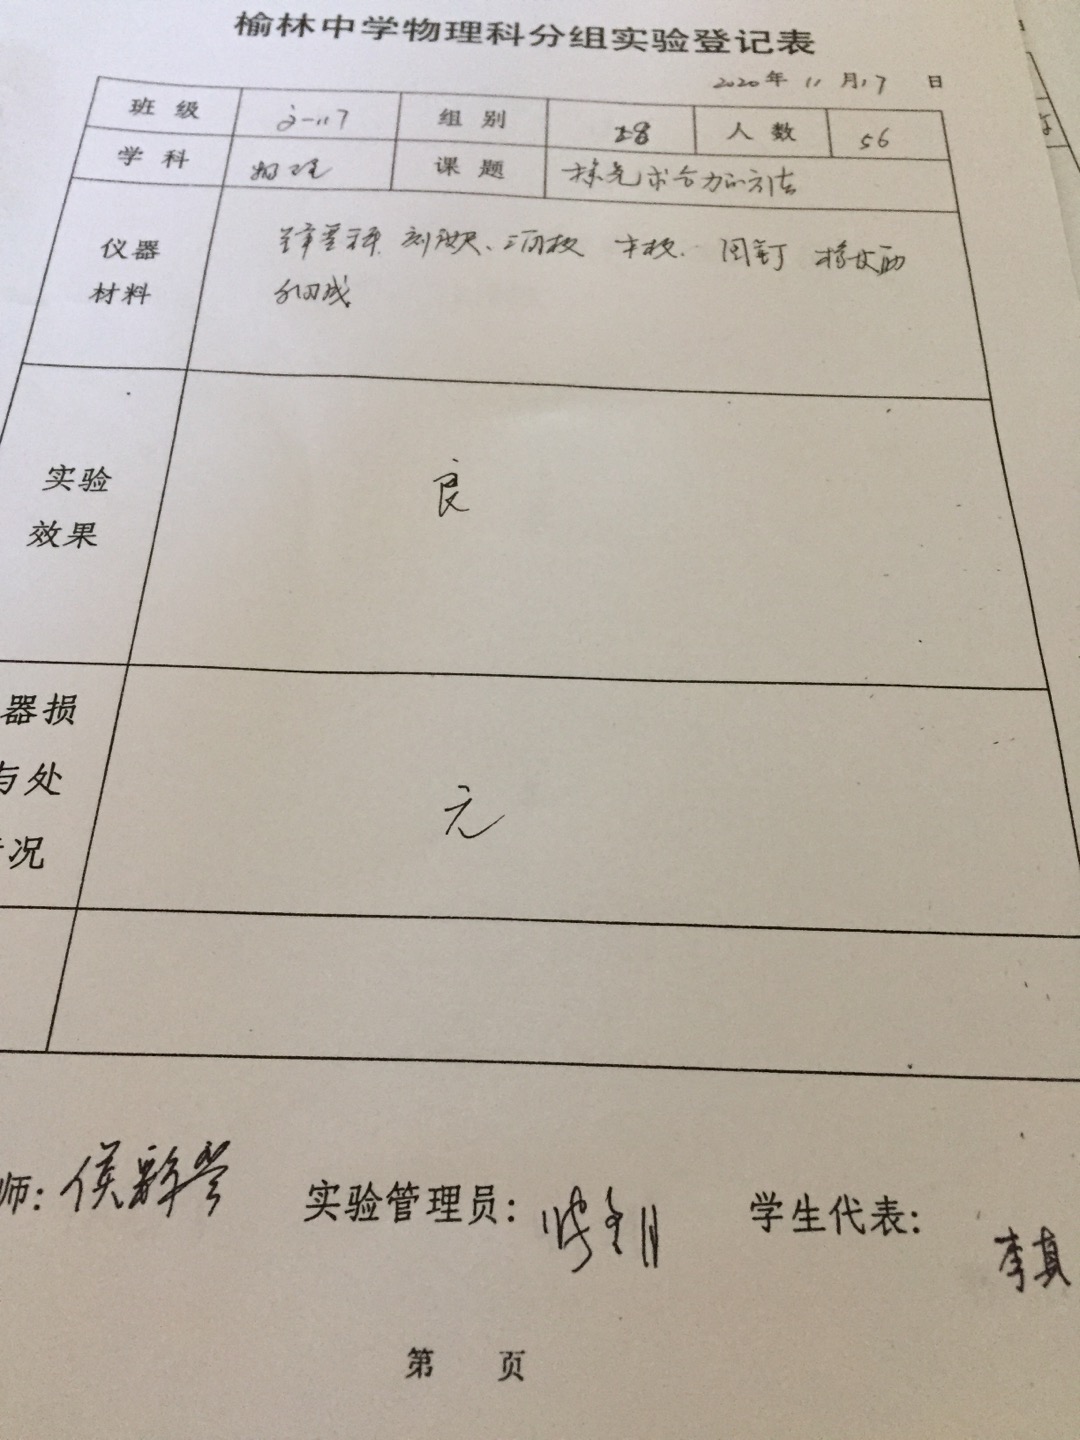 榆林中学物理科分组实验登记表
2020年 11 月17 日
班 级 组 别 28 人 数 56
学 科 物理 课 题 探究求合力的方法
仪器
材料
弹簧秤 刻度尺、三角板 木板. 图钉 橡皮筋
细线
实验
效果
良
器损
与处
情况
无
师: 侯 实验管理员: 学生代表: 李真
第 页